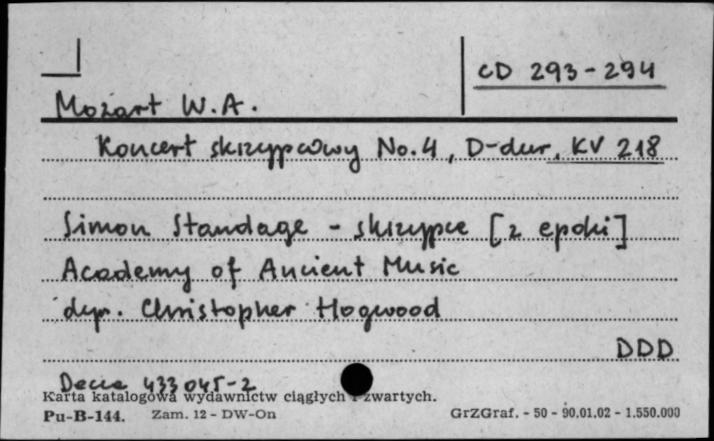 CD 293-294
Mozart W.A.
Koncert skrzypcowy No. 4, D-dur, KV 218
Simon Standage - skrzypce [z epoki]
Academy of Ancient Music
dyr. Christopher Hogwood
DDD
Decca 433 045-2
Karta katalogowa wydawnictw ciągłych i zwartych.
Pu-B-144. Zam. 12 - DW-On GrZGraf. - 50 - 90.01.02 - 1.550.000